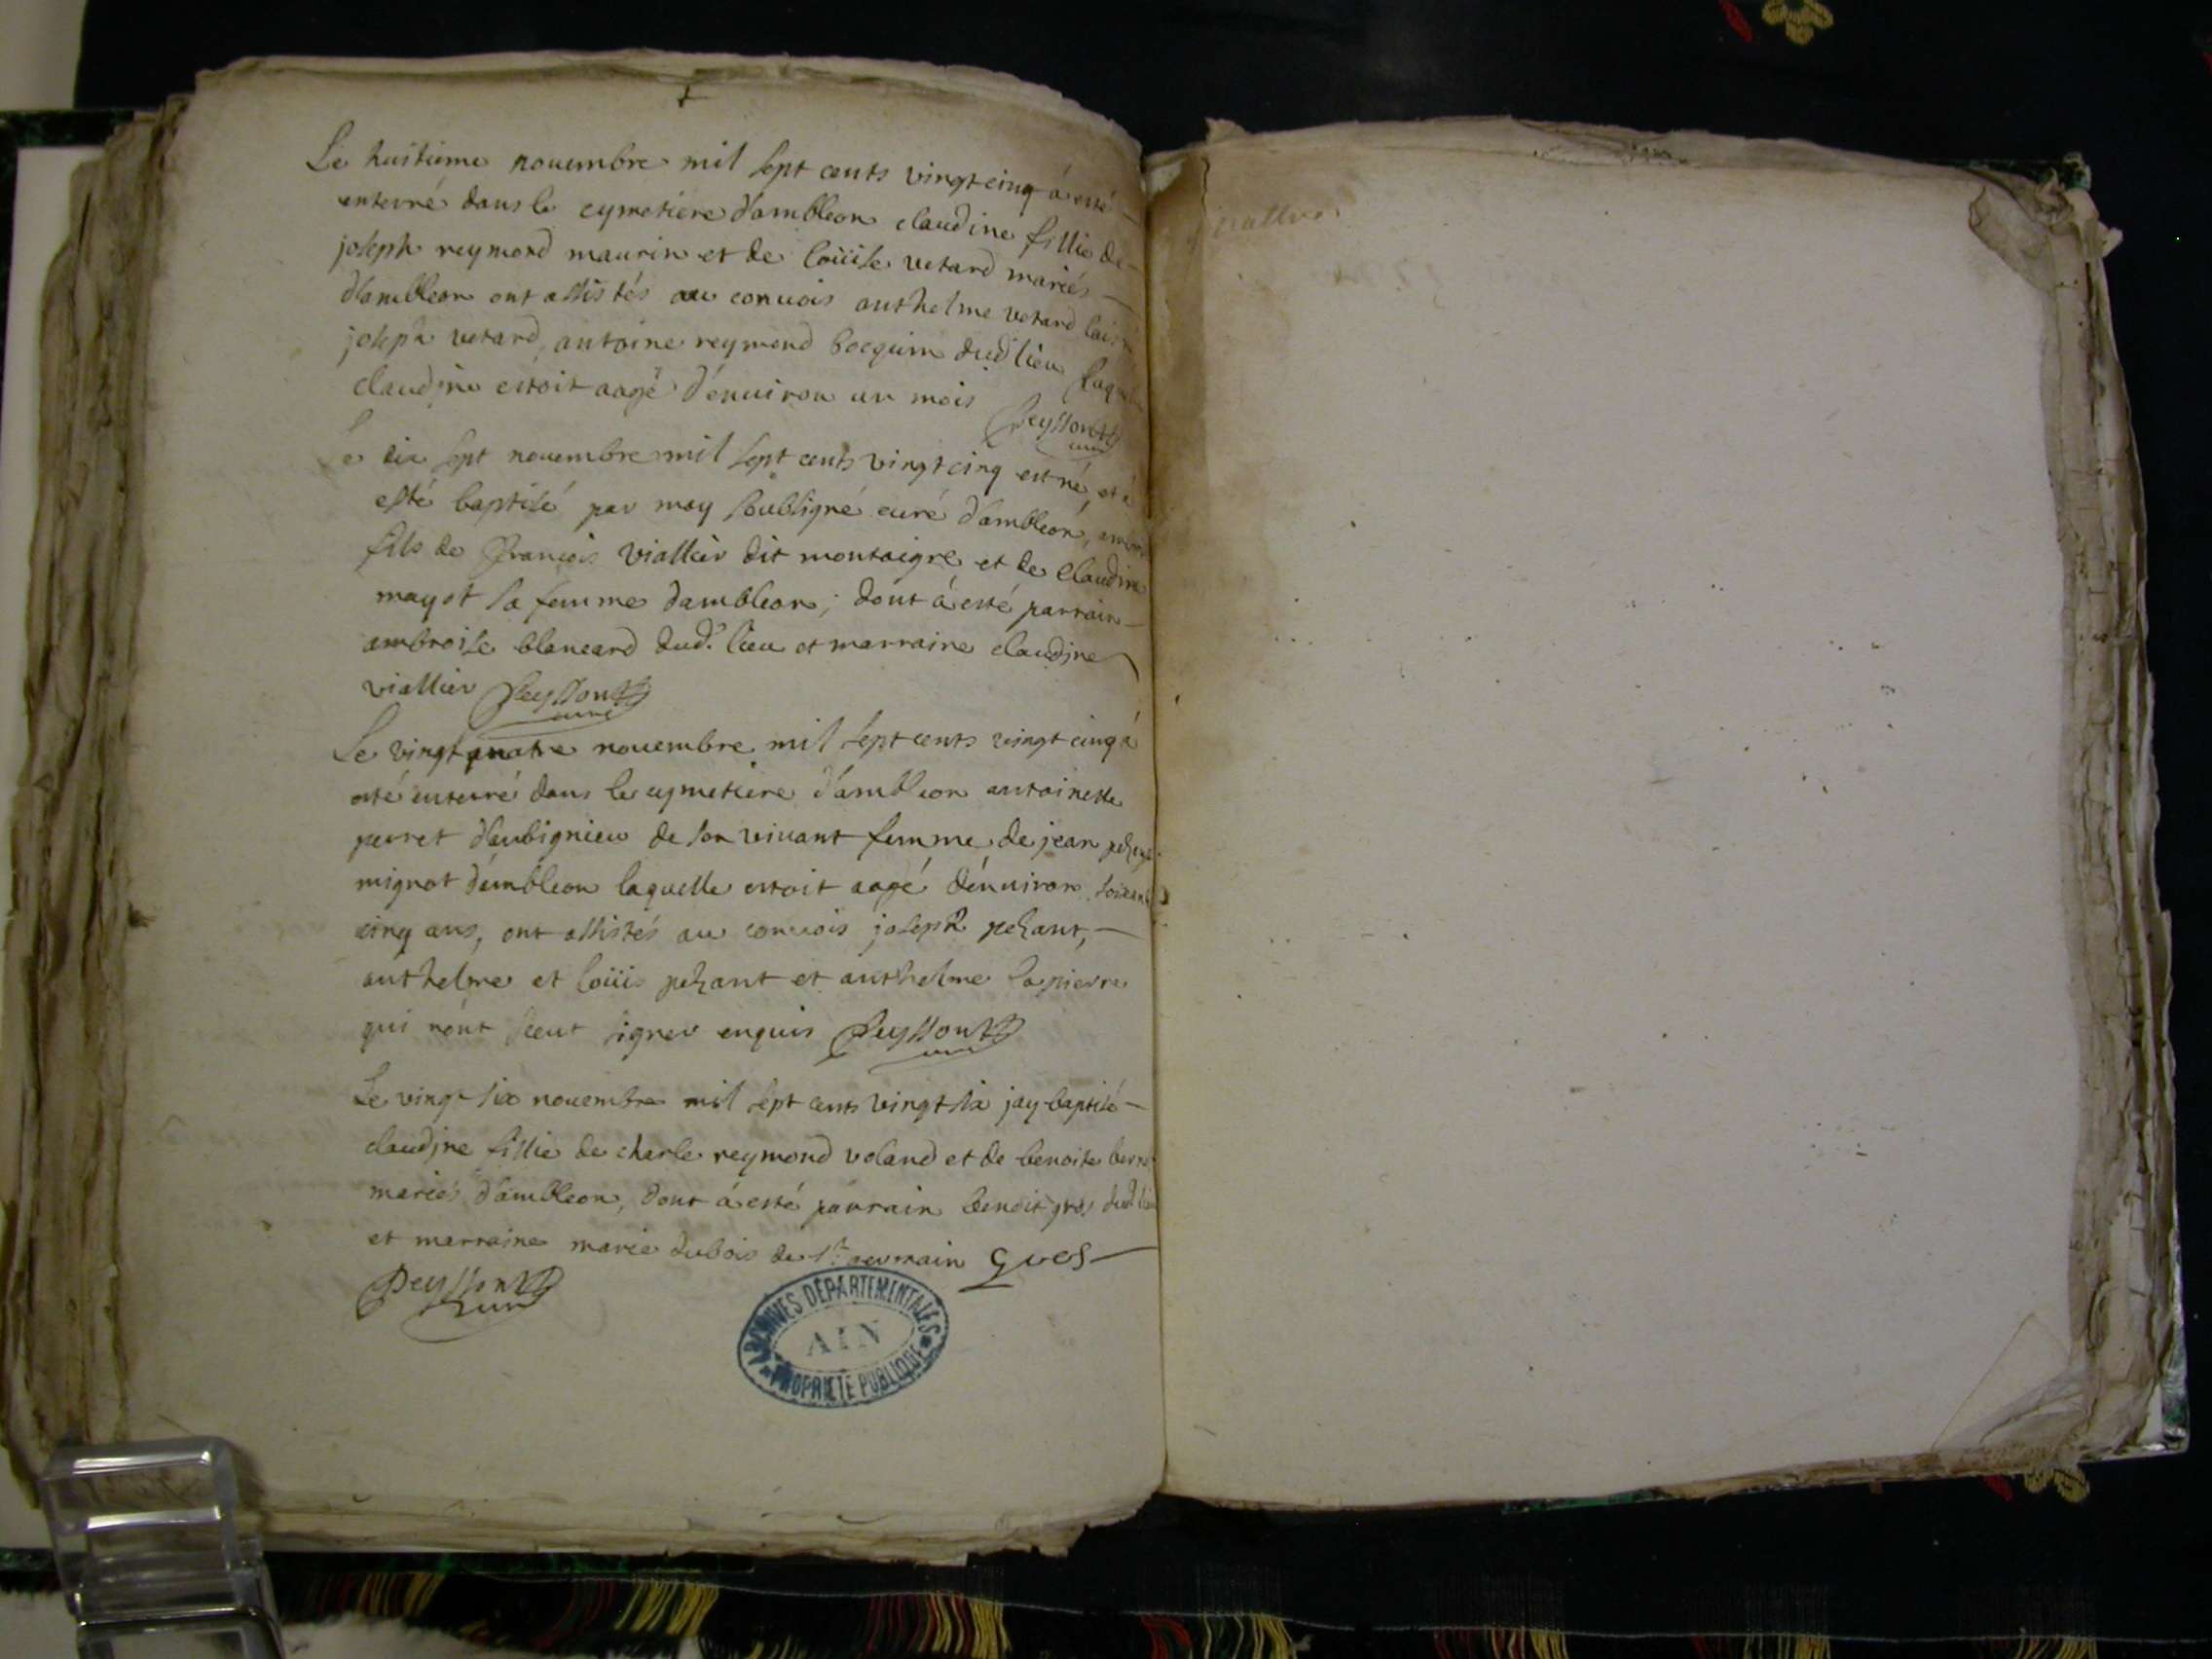 Le huitieme nouembre mil sept cents vingt cinq á esté
enterré dans le cymetiere d'ambleon claudine fillie de
joseph reymond maurin et de loüise vetard mariés
d'ambleon ont assistés au conuois anthelme vetard
joseph vetard, antoine reymond bocquin dud lieu
claudine estoit aagé d'enuiron un mois
Peysson
curé
Le dix sept nouembre mil sept cents vingt cinq est né, et á
esté baptisé par moy soubsigné curé d'ambleon,
fils de françois viallier dit montaigre et de claudine
mayot sa femme d'ambleon; dont á esté parrain
ambroise blancard dud. lieu et marraine claudine
viallier Peysson
curé
Le vingt quatre nouembre mil sept cents vingt cinq á
esté enterré dans le cymetiere d'ambleon antoinette
perret d'aubignieu de son viuant femme de jean
mignot d'ambleon laquelle estoit aagé d'enuiron soixante
cinq ans, ont assistés au conuois joseph pezant,
anthelme et loüis pezant et anthelme lapierre
qui n'ont sceut signer enquis Peysson
curé
Le vingt six nouembre mil sept cents vingt six jay baptisé
claudine fillie de charle reymond voland et de benoite
mariés d'ambleon, dont á esté parrain benoit gros dud lieu
et marraine marie dubois de st. germain Gros
Peysson
curé
ARCHIVES DÉPARTEMENTALES
AIN
PROPRIÉTÉ PUBLIQUE